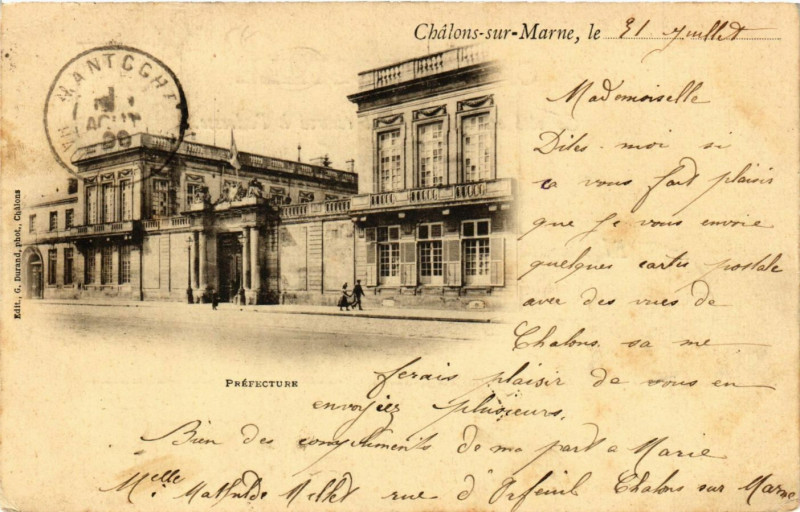 Châlons-sur-Marne, le 31 Juillet
MANTOCHE
AOUT
99
Mademoiselle
Dites-moi si
ca vous fait plaisir
que je vous envoie
quelques cartes postale
avec des vues de
Chalons. sa me
ferais plaisir de vous en
envoyiez plusieurs.
Bien des compliments de ma part a Marie
Melle Mathilde Mellet rue d'Orfeuil Chalons sur Marne
PRÉFECTURE
Edit., G. Durand, phot., Châlons